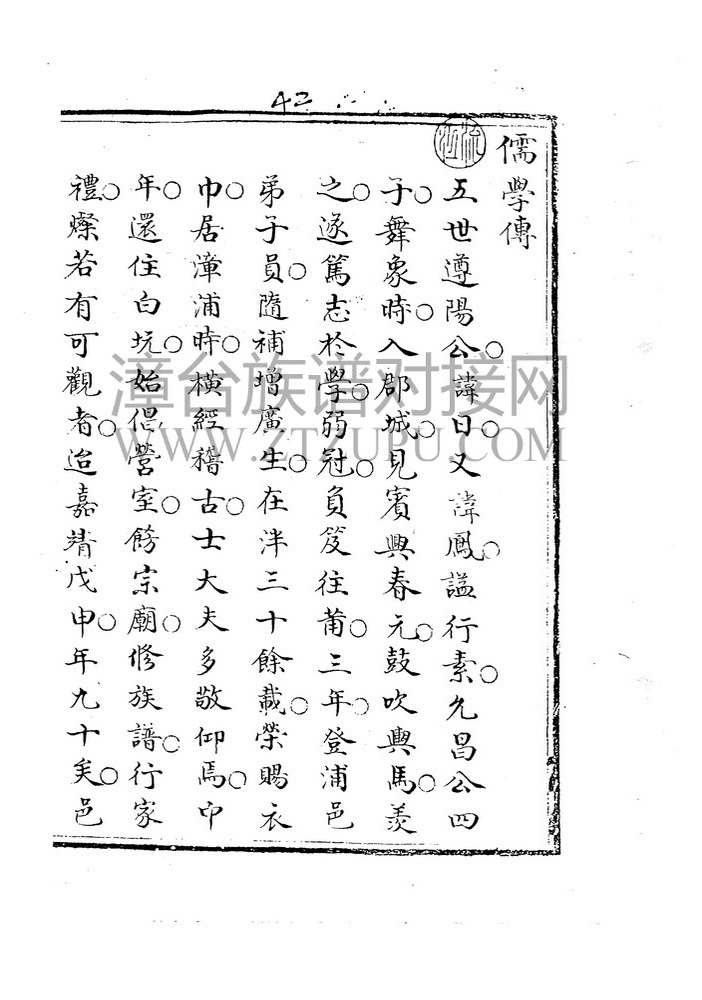 42
儒學傳
五世遵陽公○諱日○又諱鳳○謚行素○允昌公四
子○舞象時○入郡城○見賓興春元○鼓吹輿馬○羡
之○遂篤志於學○弱冠○負笈往莆○三年○登浦邑
弟子員○隨補增廣生○在泮三十餘載○榮賜衣
巾○居漳浦時○橫經稽古○士大夫多敬仰焉○
年○還住白坑○始倡營室○餙宗廟○修族譜○行家
禮○燦若有可觀者○迨嘉靖戊申○年九十矣○邑
漳台族谱对接网
WWW.ZTZUPU.COM